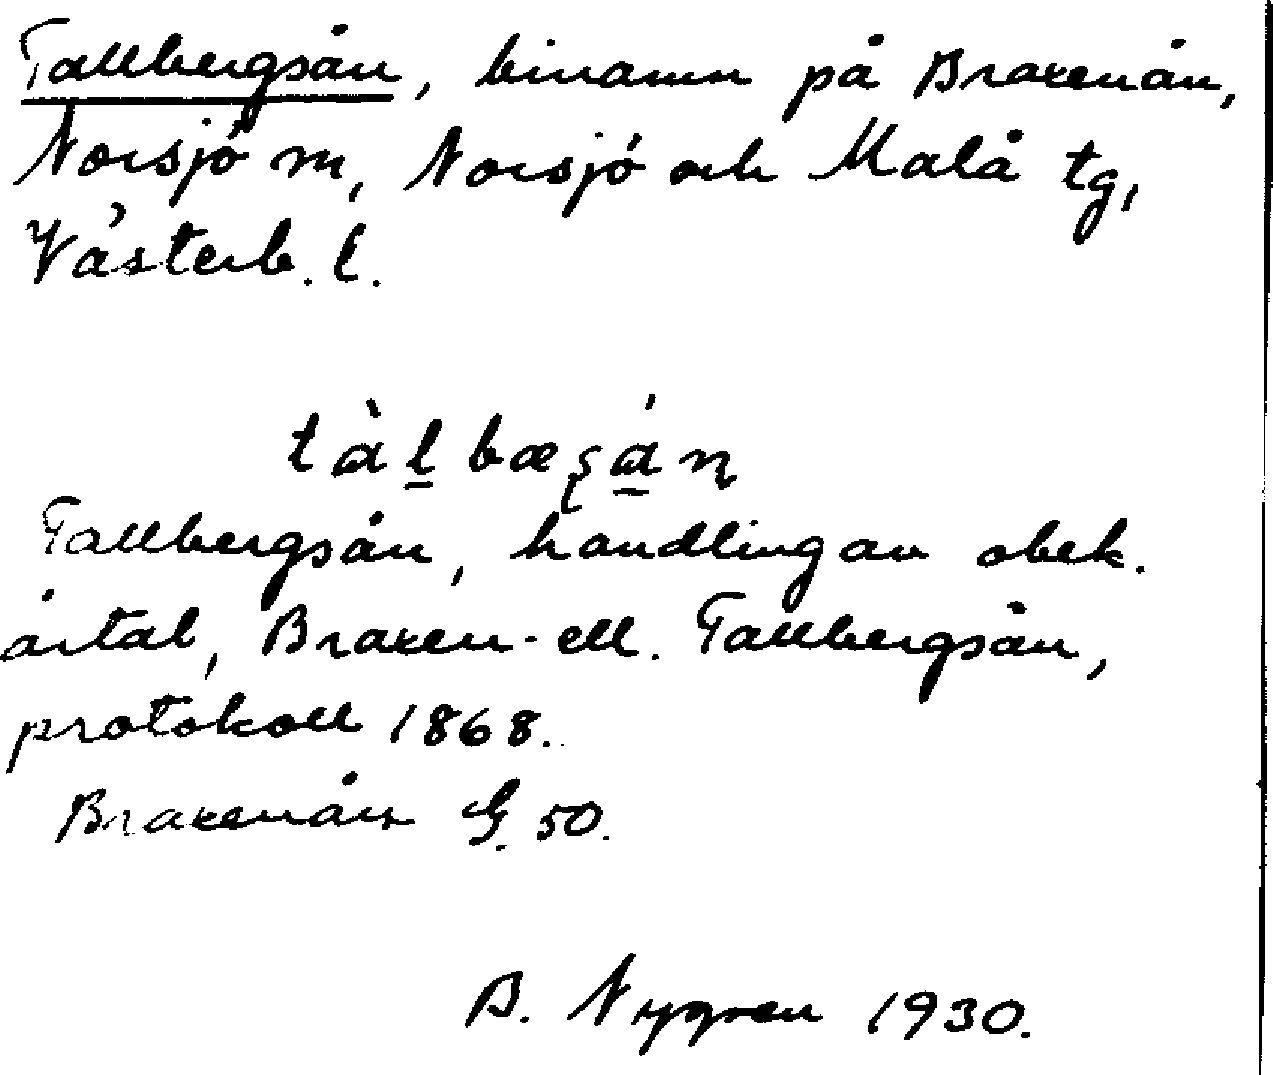 Tallbergsån, binamn på Braxenån,
Norsjö m, Norsjö och Malå tg,
Västerb. l.
tàl̲bæʂá̲n
Tallbergsån, handling av obek.
årtal, Braxen- ell. Tallbergsån,
protokoll 1868.
Braxenån G. 50.
B. Nygren 1930.